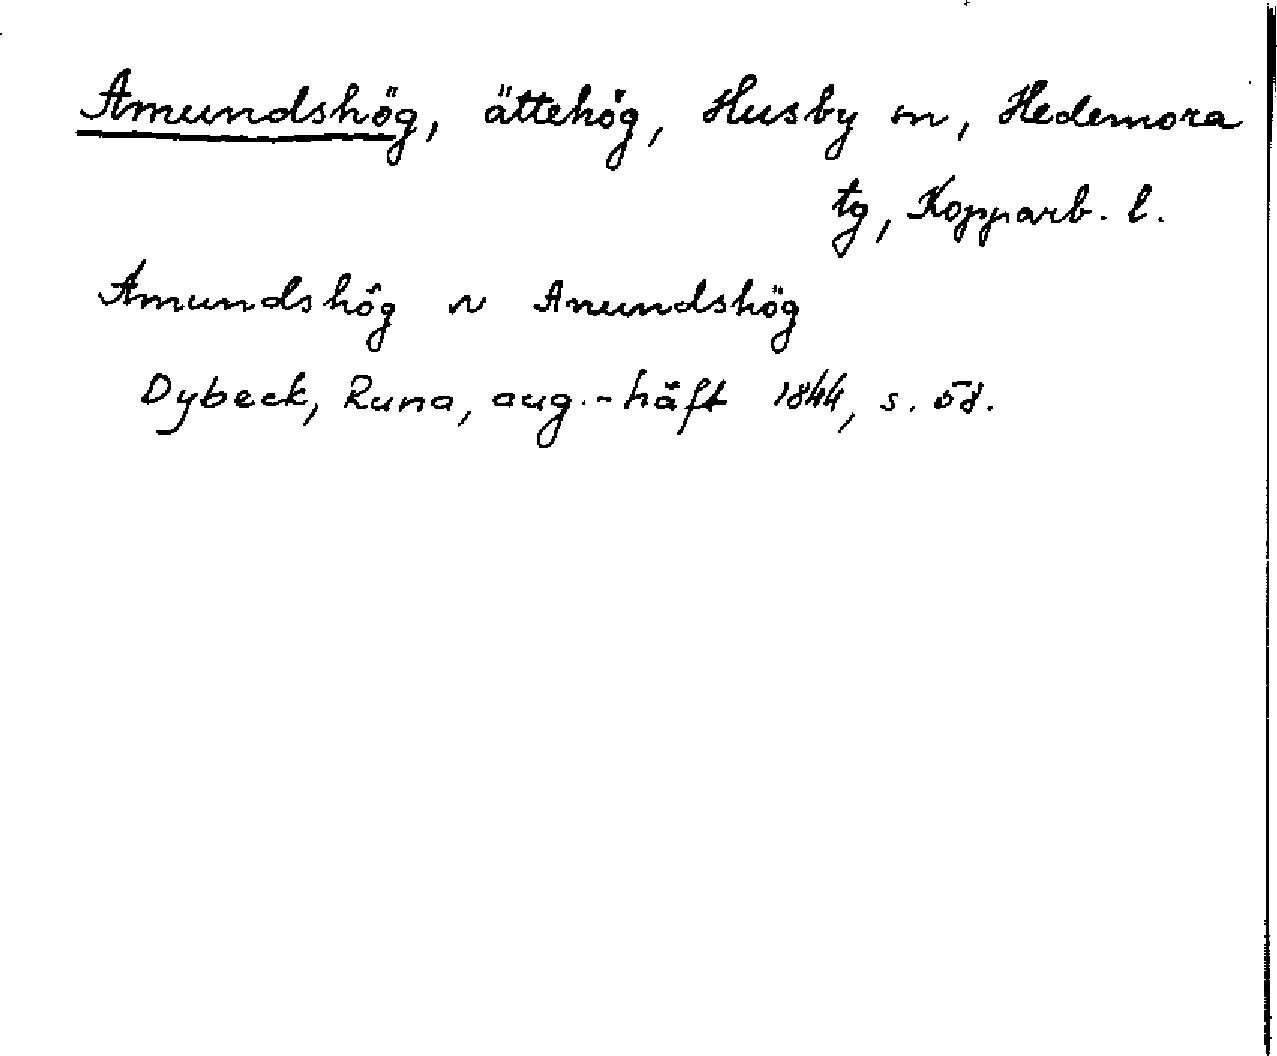 Amundshög, ättehög, Husby sn, Hedemora
tg, Kopparb. l.
Amundshög ~ Anundshög
Dybeck, Runa, aug.-häft 1844, s. 58.